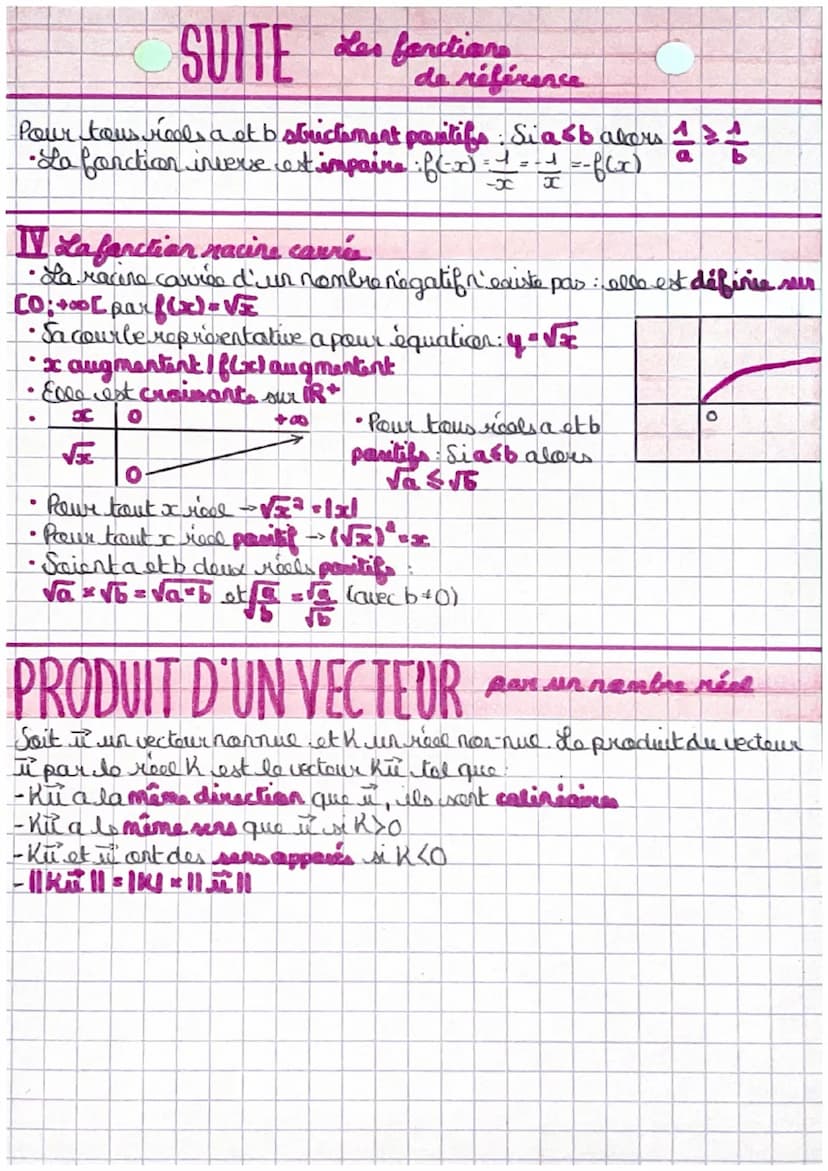 SUITE Les fonctions
de référence
Pour tous réels a et b strictement positifs : Si a≤b alors 1/a ≥ 1/b
• La fonction inverse est impaire : f(-x) = 1/-x = -1/x = -f(x)
IV La fonction racine carrée
• La racine carrée d'un nombre négatif n'existe pas : elle est définie sur
[0;+∞[ par f(x)=√x
• Sa courbe représentative a pour équation : y = √x
• x augmentent / f(x) augmentent
• Elle est croissante sur IR⁺
• x 0 +∞
√x 0
• Pour tous réels a et b
positifs : Si a≤b alors
√a ≤ √b
0
• Pour tout x réel → √x² = |x|
• Pour tout x réel positif → (√x)² = x
• Soient a et b deux réels positifs :
√a × √b = √a×b et √a/b = √a/√b (avec b≠0)
PRODUIT D'UN VECTEUR par un nombre réel
Soit u⃗ un vecteur non nul et K un réel non-nul. Le produit du vecteur
u⃗ par le réel K est le vecteur Ku⃗ tel que :
- Ku⃗ a la même direction que u⃗, ils sont colinéaires
- Ku⃗ a le même sens que u⃗ si K>0
- Ku⃗ et u⃗ ont des sens opposés si K<0
- ||Ku⃗|| = |K| × ||u⃗||